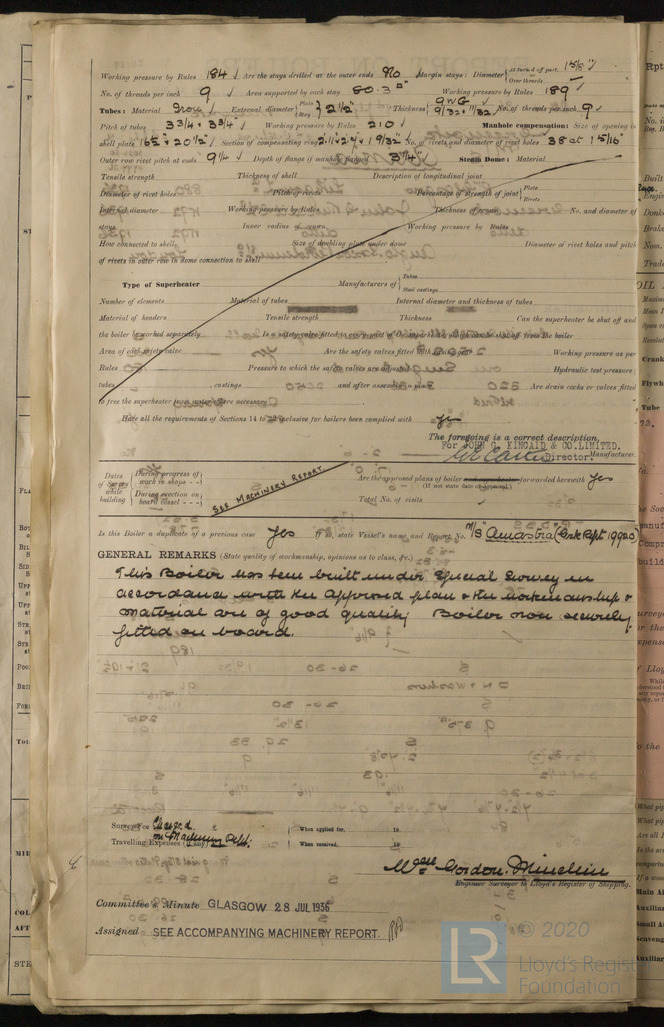 Working pressure by Rules 184 ✓ Are the stays drilled at the outer ends No Margin stays: Diameter At turned off part, 1 5/8" ✓ or Over threads
No. of threads per inch 9 ✓ Area supported by each stay 80.3 □" Working pressure by Rules 189 ✓
Tubes: Material Iron ✓ External diameter Plain Stay 2 1/2" Thickness 9WG 9/32" 11/32" No. of threads per inch 9 ✓
Pitch of tubes 3 3/4 × 3 3/4" ✓ Working pressure by Rules 210 Manhole compensation: Size of opening in
shell plate 16 1/2" × 20 1/2" ✓ Section of compensating ring 19/32" ✓ No. of rivets and diameter of rivet holes 38 at 15/16"
Outer row rivet pitch at ends 9 1/4 ✓ Depth of flange if manhole flanged 3 1/4" ✓ Steam Dome: Material
Tensile strength Thickness of shell Description of longitudinal joint
Diameter of rivet holes Pitch of rivets Percentage of strength of joint Plate Rivets
Internal diameter Working pressure by Rules Thickness of crown No. and diameter of
stays Inner radius of crown Working pressure by Rules
How connected to shell Size of doubling plate under dome Diameter of rivet holes and pitch
of rivets in outer row in dome connection to shell
Type of Superheater Manufacturers of Tubes Steel castings
Number of elements Material of tubes Internal diameter and thickness of tubes
Material of headers Tensile strength Thickness Can the superheater be shut off and
the boiler be worked separately Is a safety valve fitted to every part of the superheater which can be shut off from the boiler
Area of each safety valve Are the safety valves fitted with easing gear Working pressure as per
Rules Pressure to which the safety valves are adjusted Hydraulic test pressure:
tubes castings and after assembly in place Are drain cocks or valves fitted
to free the superheater from water where necessary
Have all the requirements of Sections 14 to 22 inclusive for boilers been complied with Yes
The foregoing is a correct description,
For JOHN G. KINCAID & CO. LIMITED.
Director. Manufacturer.
Dates of Survey while building During progress of work in shops - - During erection on board vessel - - - SEE MACHINERY REPORT. Are the approved plans of boiler forwarded herewith Yes
(If not state date of approval.)
Total No. of visits ✓
Is this Boiler a duplicate of a previous case Yes If so, state Vessel's name and Report No. M/S "Amastra" (Grk Rpt 19920)
GENERAL REMARKS (State quality of workmanship, opinions as to class, &c.)
This Boiler has been built under Special Survey in
accordance with the approved plan & the workmanship &
material are of good quality. Boiler now securely
fitted on board.
Survey Fee Charged When applied for, 19
on Machinery Rpt.
Travelling Expenses (if any) When received, 19
Gordon. Minchin
Engineer Surveyor to Lloyd's Register of Shipping.
Committee's Minute GLASGOW 28 JUL 1936
Assigned SEE ACCOMPANYING MACHINERY REPORT.
LR © 2020
Lloyd's Register
Foundation